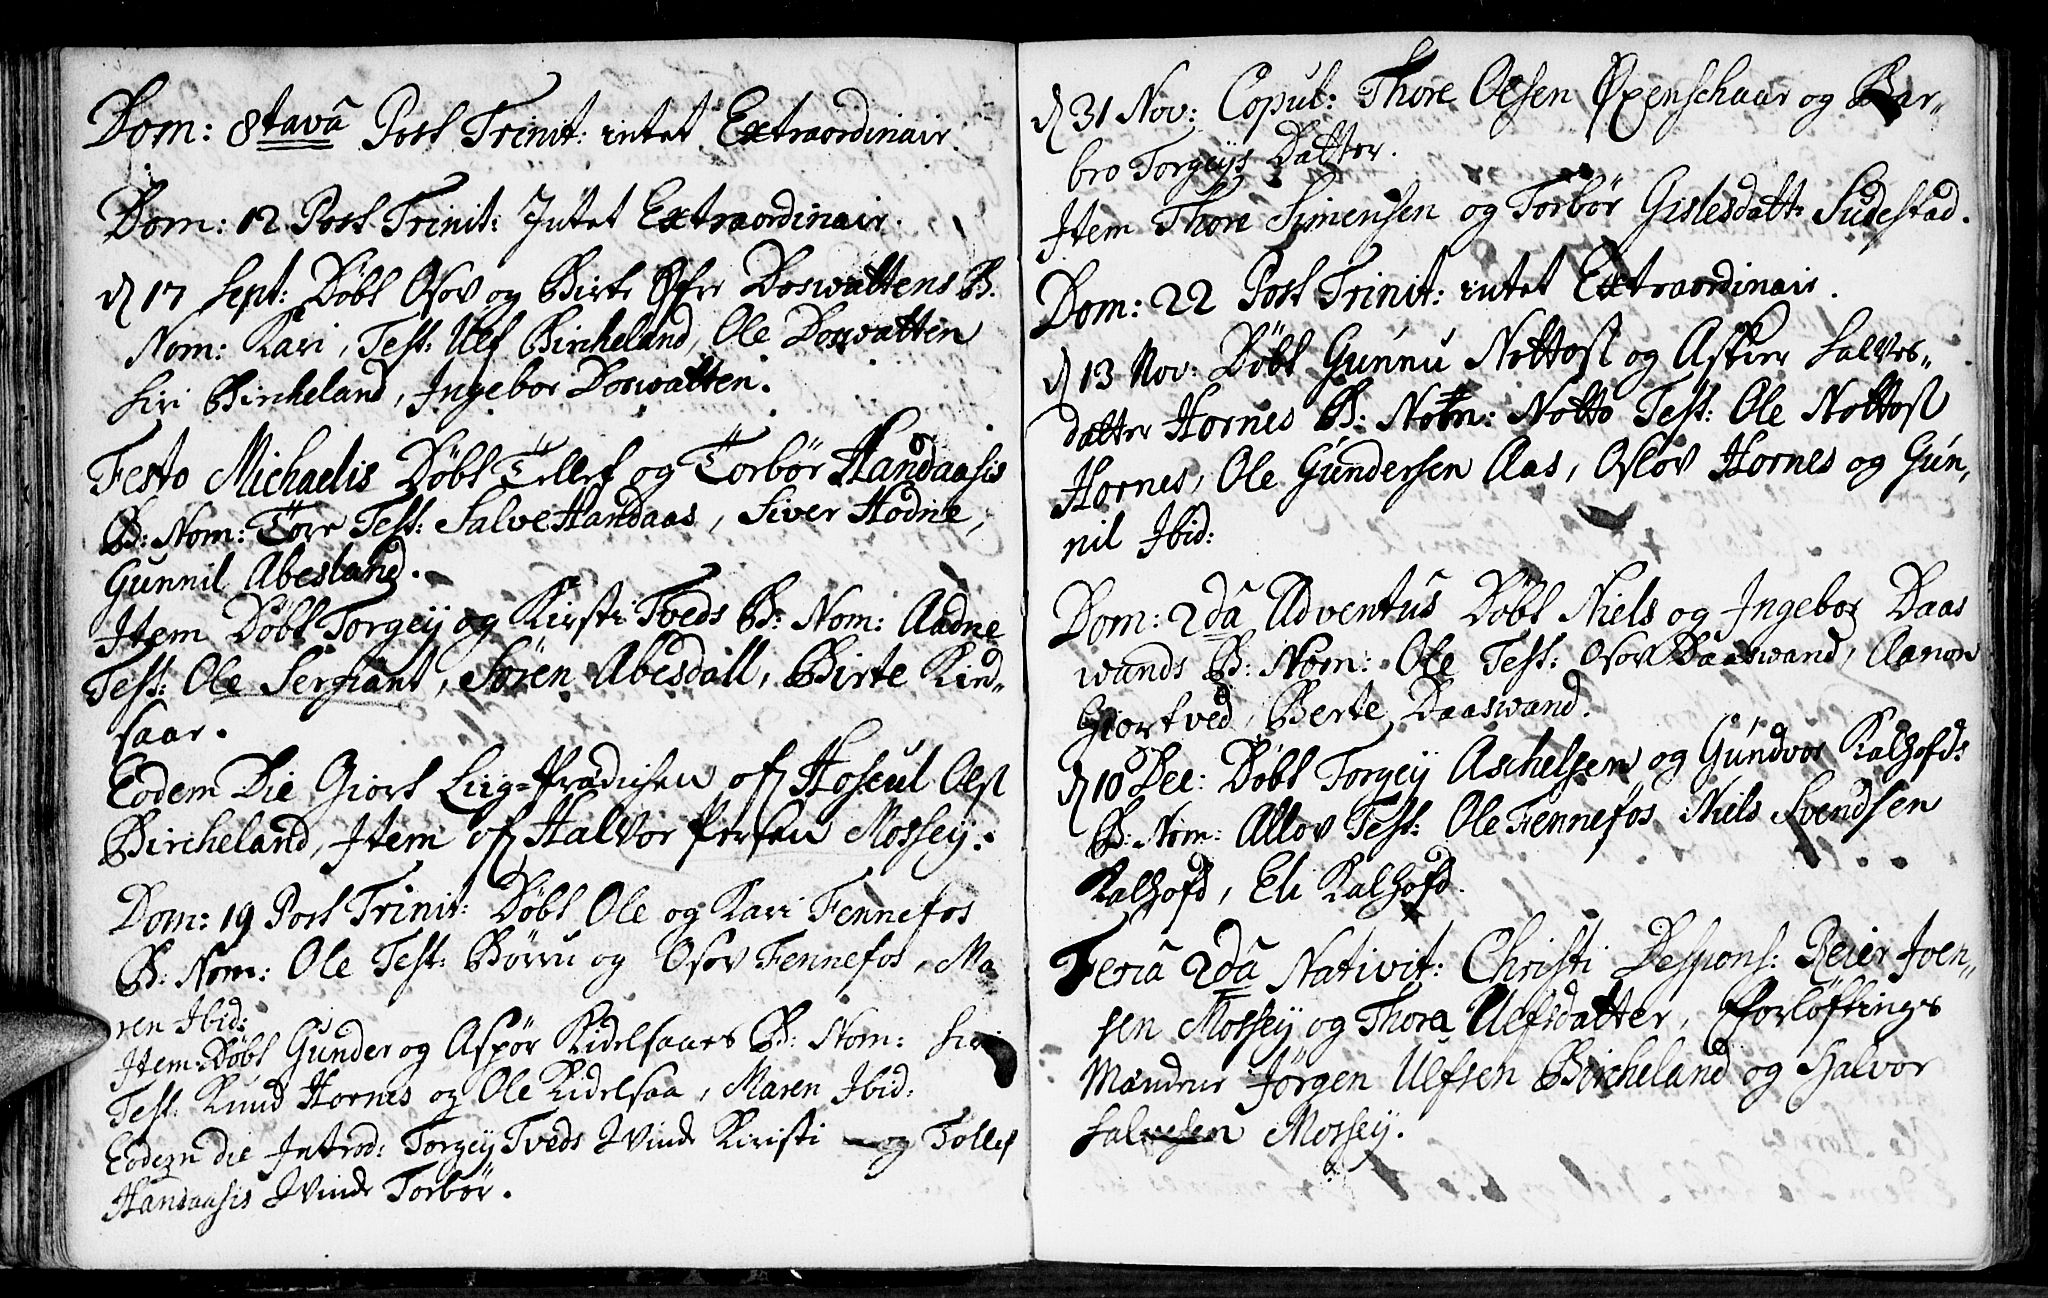 Dom: 8tavâ Post Trinit: intet Extraordinair.
Dom: 12 Post Trinit: Intet Extraordinair.
d 17 Sept: Døbt Osov og Birte Doswattens B.
Nom: Kari, Test: Ulf Bircheland, Ole Doswatten
Siri Bircheland, Ingebor Doswatten.
Festo Michaelis Døbt Tellef og Torbør Handaasis
B: Nom: Tore Test: Salve Handaas, Siver Hodne,
Gunnil Abesland.
Item Døbt Torgey og Kirsti Tveds B: Nom: Aadne
Test: Ole Sergiant, Søren Abesdall, Birte Kind-
saar.
Eodem Die Giort Liig-Prædichen of Hoscul Olst
Bircheland, Item of Halvor Persen Mossey.
Dom: 19 Post Trinit: Døbt Ole og Kari Fennefos
B: Nom: Ole Test: Børru og Osov Fennefos, Ma
ren Ibid:
Item Døbt Gunder og Aspør Kidelsaaes B: Nom: Siri
Test: Knud Hornes og Ole Kidelsaa, Maren Ibid:
Eodem die Introd: Torgey Tveds Qvinde Kirsti og Tollef
Handaasis Qvinde Torbør.
d 31 Nov: Copul: Thore Olsen Øxenschaar og Bar-
bro Torgeys Datter.
Item Thore Simensen og Torbør Gislesdatt: Sudestad.
Dom: 22 Post Trinit: intet Extraordinair.
d 13 Nov: Døbt Gunnu Nottost og Astier Salves-
datter Hornes B: Nom: Notto Test: Ole Nottost
Hornes, Ole Gundersen Aas, Oslov Hornes og Gun-
nil Ibid:
Dom: 2dâ Adventûs Døbt Niels og Ingebor Daas
wands B: Nom: Ole Test: Osov Daaswand, Aanon
Giortved, Berte Daaswand.
d 10 Dec: Døbt Torgey Aschelsen og Gundvor Kalhofds
B: Nom: Allov Test: Ole Fennefos Niels Svendsen
Kalhofd, Eli Kalhofd.
Feriâ 2dâ Nativit: Christi Despons: Reier Joen-
sen Mossey og Thora Ulfsdatter, Forløftings
Mændene Jørgen Ulfsen Bircheland og Halvor
Salvesen Mossey.